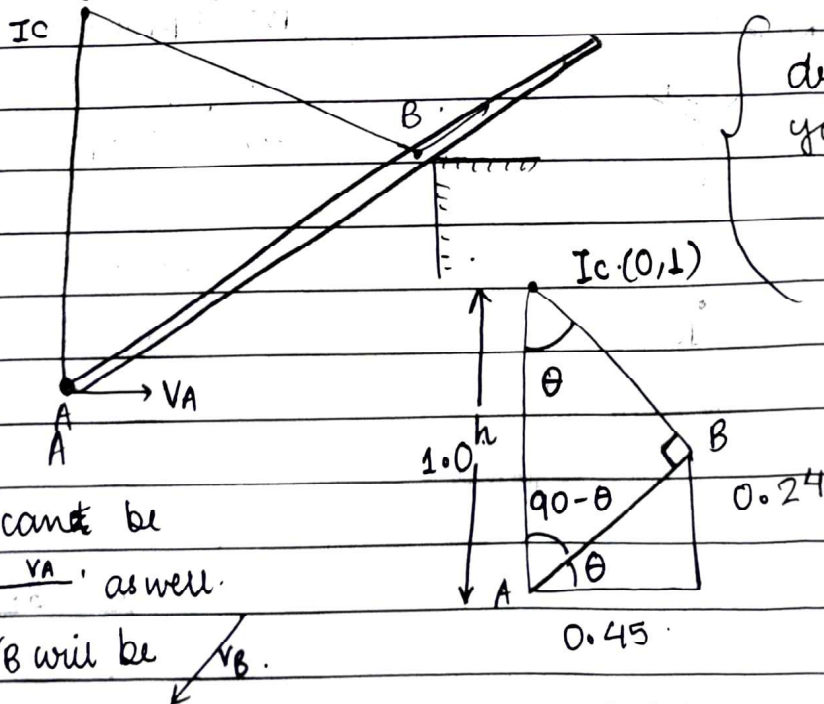 IC
B
de
yo
Ic.(0,1)
θ
VA
A
A
h
1.0
B
90-θ
0.24
θ
A
0.45
cant be
VA as well.
B will be VB.